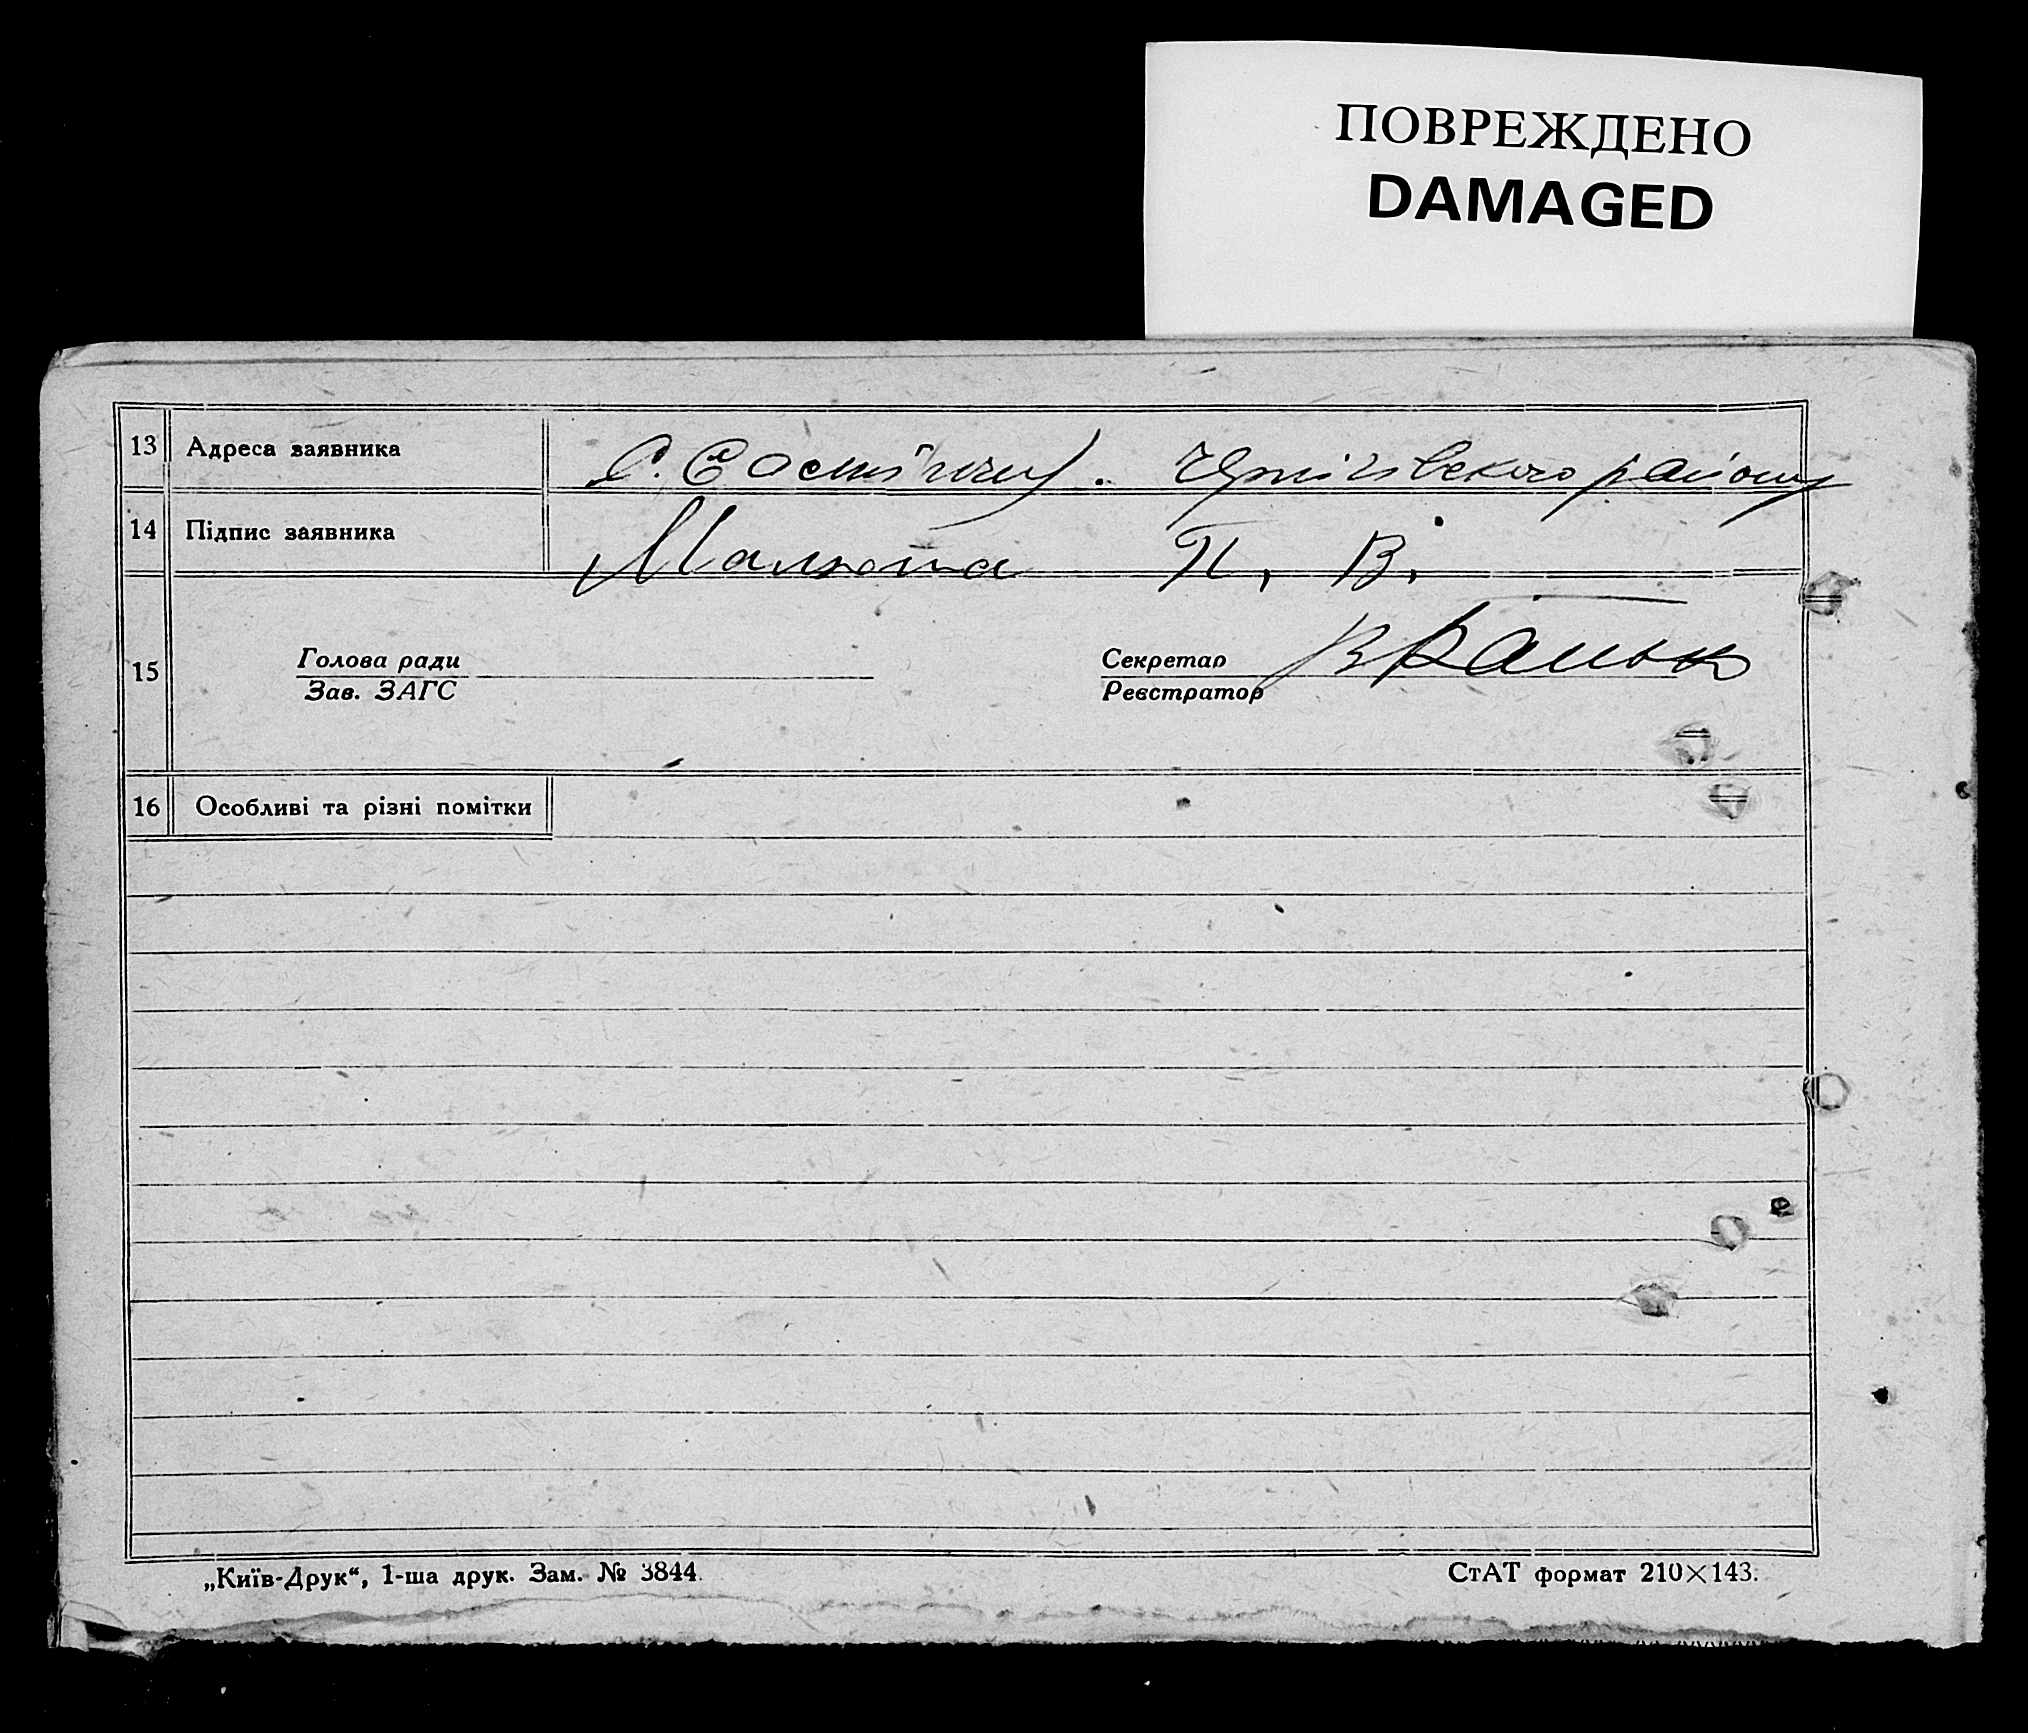 ПОВРЕЖДЕНО
DAMAGED
13 Адреса заявника С. Чернігівського району
14 Підпис заявника Малюта П. В.
15 Голова ради Секретар
Зав. ЗАГС Реєстратор
16 Особливі та різні помітки
„Київ-Друк“, 1-ша друк. Зам. № 3844. СтАТ формат 210×143.